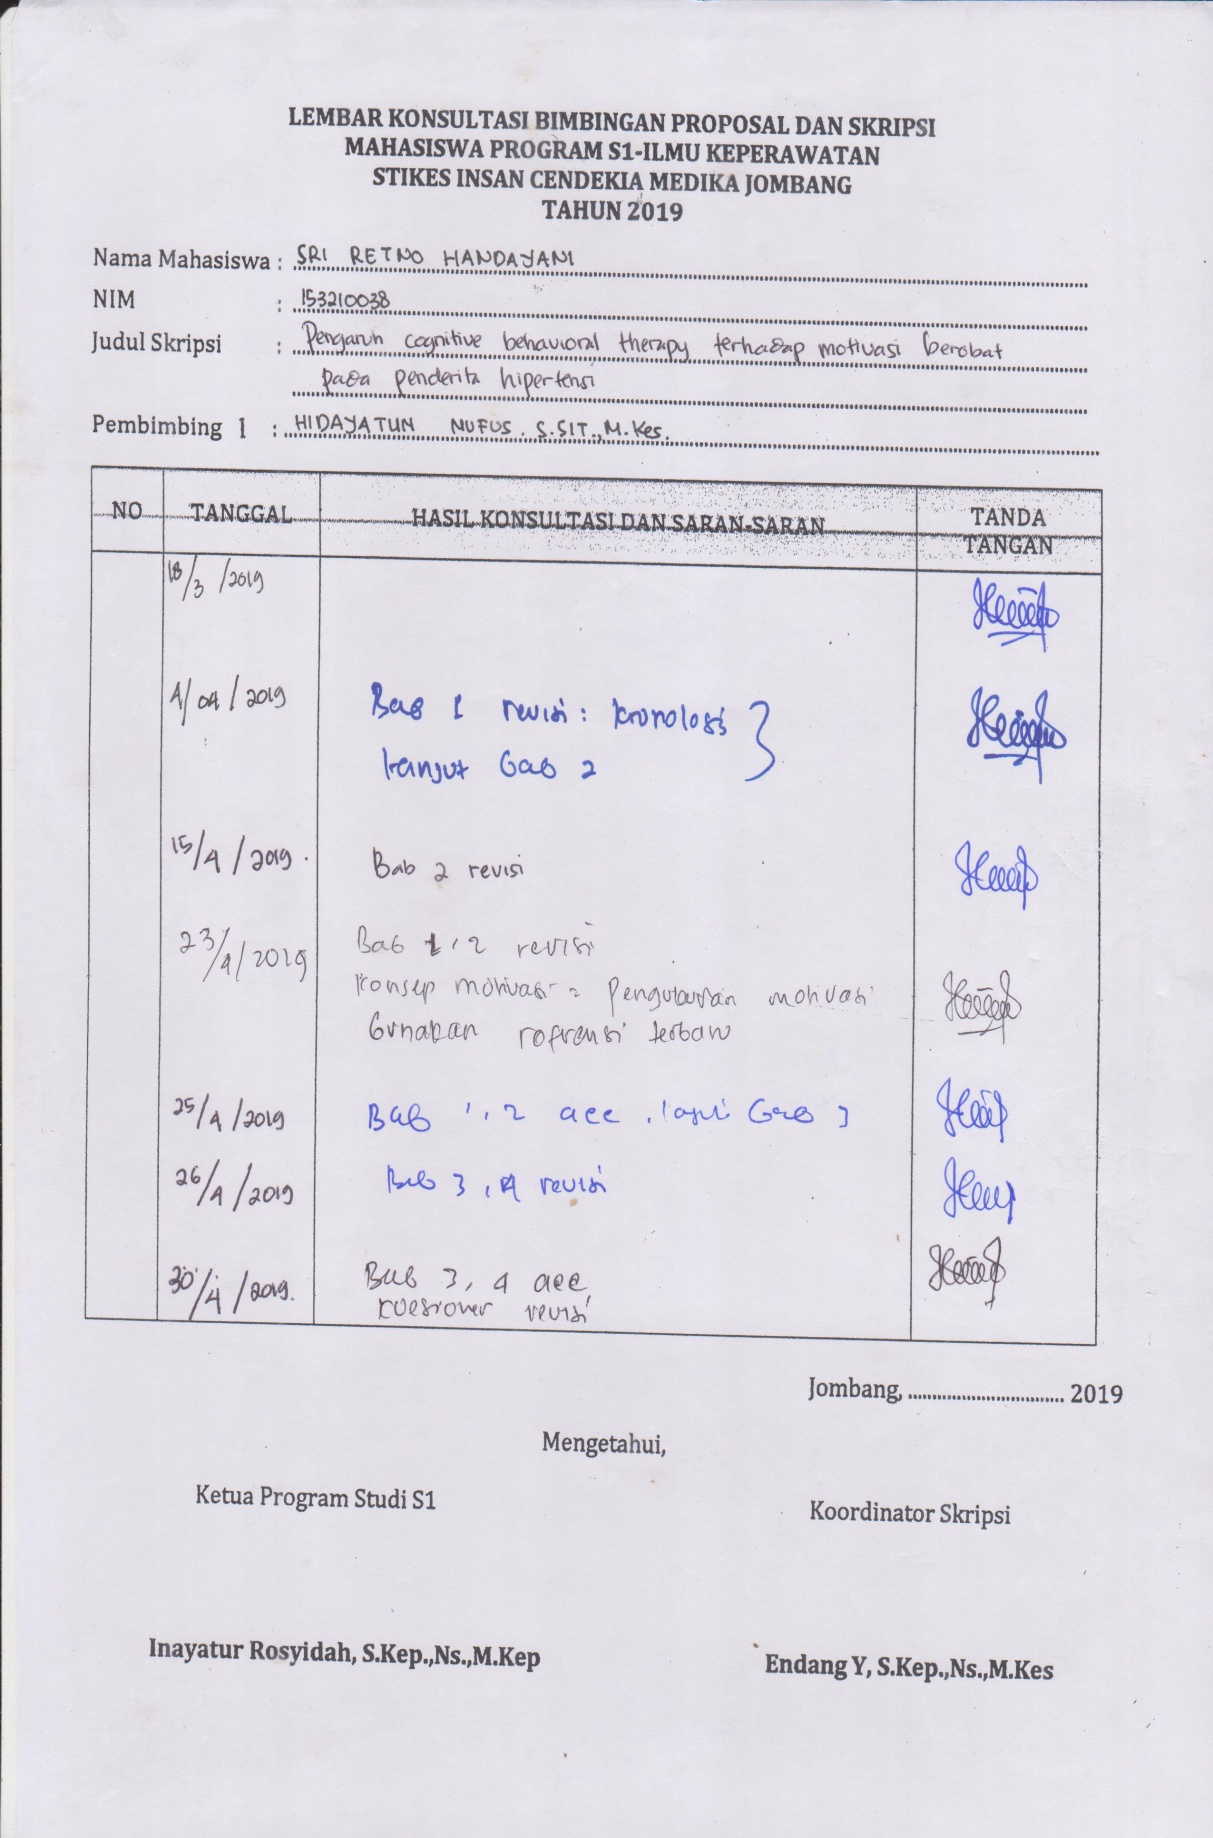 LEMBAR KONSULTASI BIMBINGAN PROPOSAL DAN SKRIPSI
MAHASISWA PROGRAM S1-ILMU KEPERAWATAN
STIKES INSAN CENDEKIA MEDIKA JOMBANG
TAHUN 2019
Nama Mahasiswa : SRI RETNO HANDAYANI
NIM : 153210038
Judul Skripsi : Pengaruh cognitive behavioral therapy terhadap motivasi berobat
pada penderita hipertensi
Pembimbing 1 : HIDAYATUN NUFUS. S.SIT., M.Kes.
NO TANGGAL HASIL KONSULTASI DAN SARAN-SARAN TANDA TANGAN
18/3 /2019
4/04/2019 Bab 1 revisi : kronologis
Lanjut bab 2
15/4/2019. Bab 2 revisi
23/4/2019 Bab 1, 2 revisi
Konsep motivasi = Pengukuran motivasi
Gunakan refrensi terbaru
25/4/2019 Bab 1, 2 acc. bab 3
26/4/2019 Bab 3, 4 revisi
30/4/2019. Bab 3, 4 acc,
kuesioner revisi
Jombang, .................................. 2019
Mengetahui,
Ketua Program Studi S1 Koordinator Skripsi
Inayatur Rosyidah, S.Kep.,Ns.,M.Kep Endang Y, S.Kep.,Ns.,M.Kes